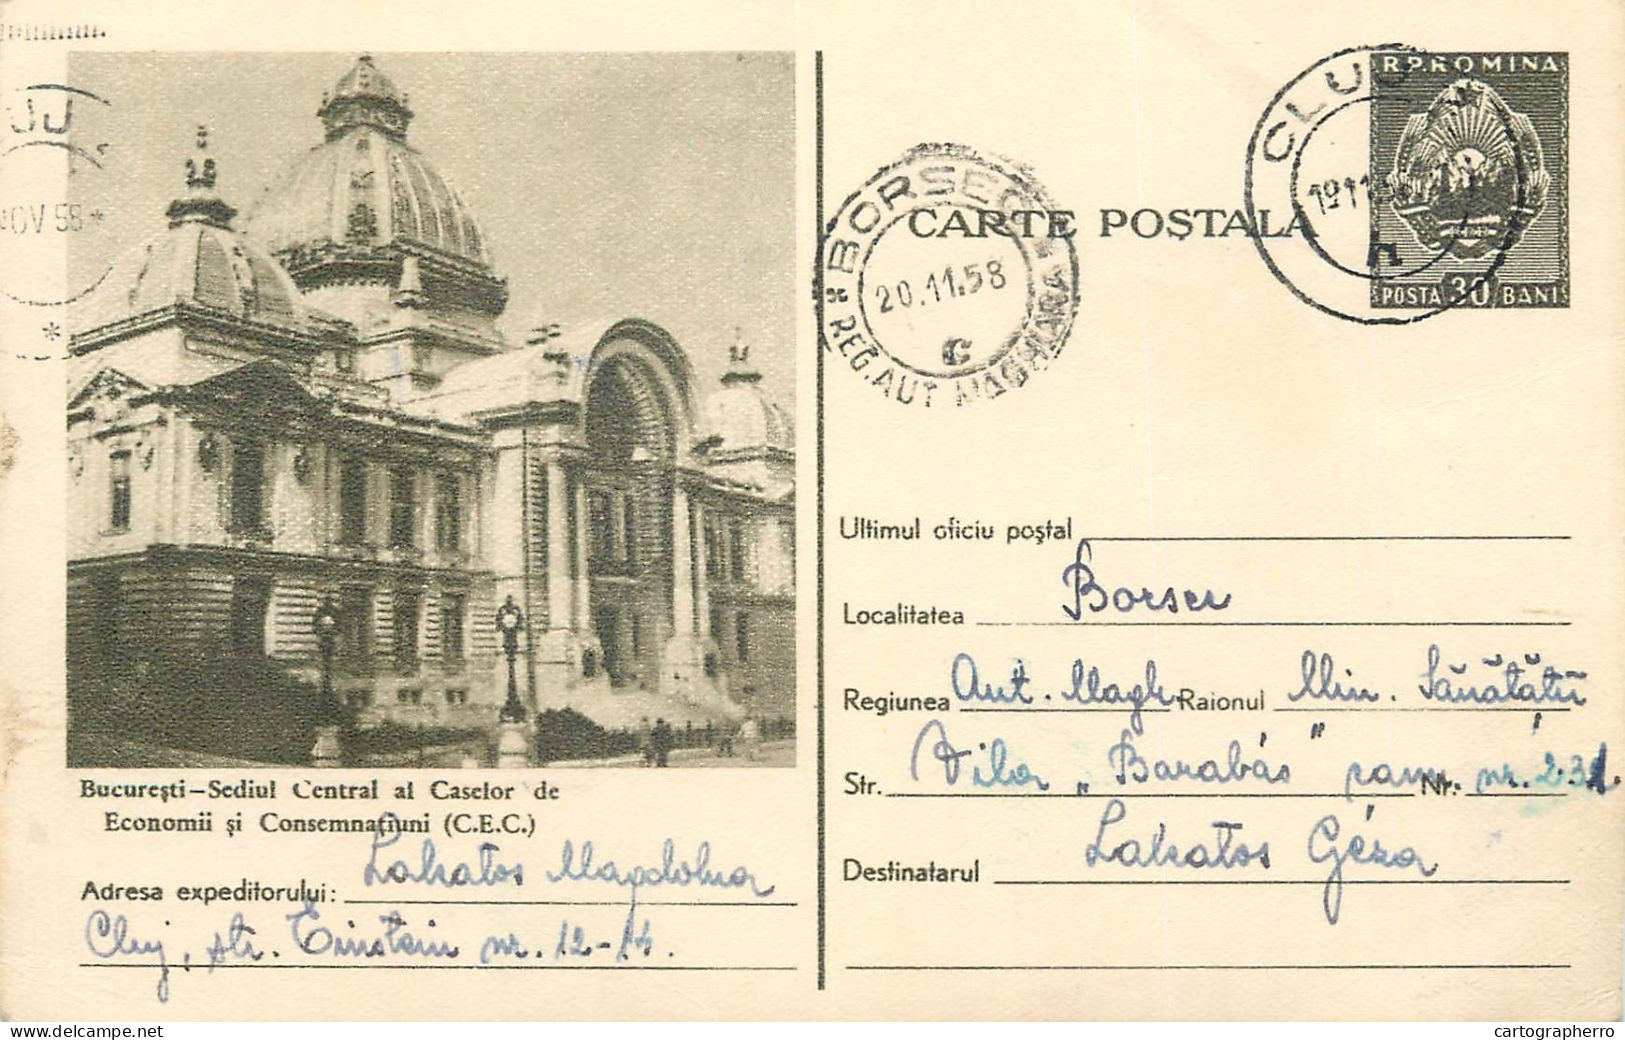 CLUJ
NOV 58 *
*
CARTE POȘTALĂ
BORSEC
* REG. AUT. MAGHIARA *
20.11.58
C
CLUJ
h
R.P.ROMINA
POSTA 30 BANI
Ultimul oficiu poștal
Localitatea Borsec
Regiunea Aut. Magh. Raionul Min. Sănătății
Str. Vila „Barabás” cam. Nr. nr. 231.
Destinatarul Lakatos Géza
București–Sediul Central al Caselor de
Economii și Consemnațiuni (C.E.C.)
Adresa expeditorului: Lakatos Magdolna
Cluj, str. Einstein nr. 12-14.
cartographerro